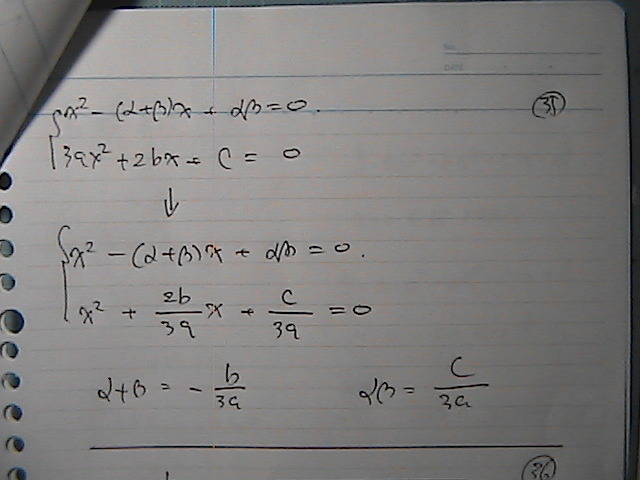 NO.
DATE
x² - (α+β)x + αβ = 0. ㉟
3ax² + 2bx + C = 0
↓
x² - (α+β)x + αβ = 0.
x² + 2b/3a x + C/3a = 0
α+β = - b/3a αβ = C/3a
㊱